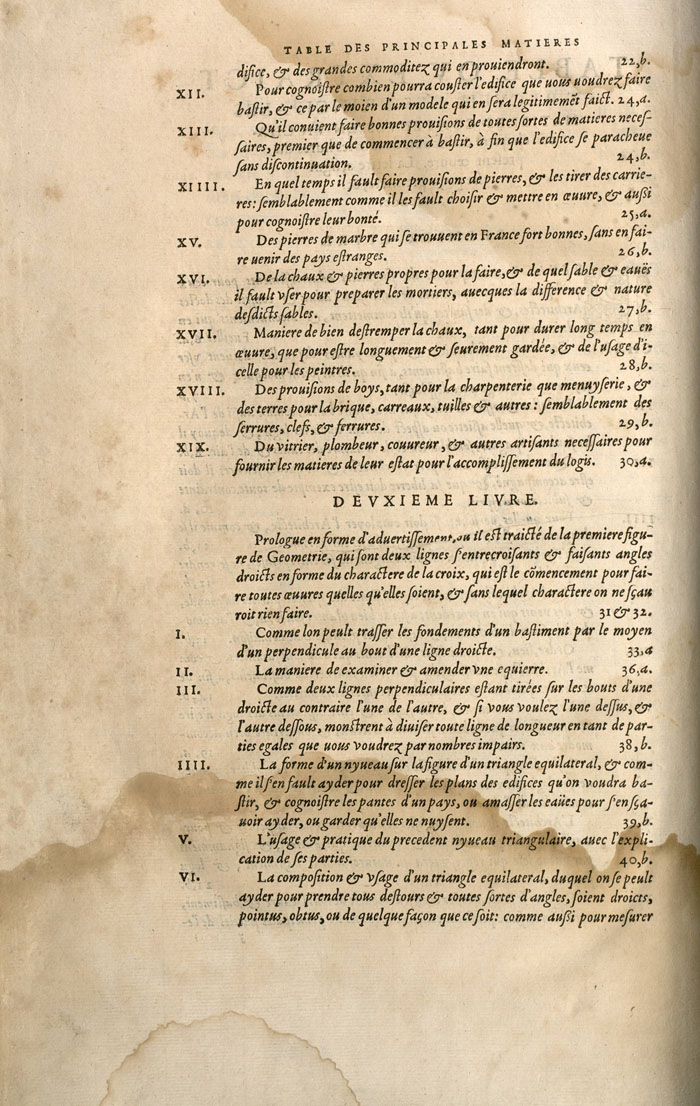 TABLE DES PRINCIPALES MATIERES
difice, & des grandes commoditez qui en prouiendront. 22,b.
XII. Pour cognoistre combien pourra couster l'edifice que uous uoudrez faire
bastir, & ce par le moien d'un modele qui en sera legitimemẽt faict. 24,a.
XIII. Qu'il conuient faire bonnes prouisions de toutes sortes de matieres neces-
saires, premier que de commencer à bastir, à fin que l'edifice se paracheue
sans discontinuation. 24,b.
XIIII. En quel temps il fault faire prouisions de pierres, & les tirer des carrie-
res: semblablement comme il les fault choisir & mettre en œuure, & aussi
pour cognoistre leur bonté. 25,a.
XV. Des pierres de marbre qui se trouuent en France fort bonnes, sans en fai-
re uenir des pays estranges. 26,b.
XVI. De la chaux & pierres propres pour la faire, & de quel sable & eaues
il fault vser pour preparer les mortiers, auecques la difference & nature
desdicts sables. 27,b.
XVII. Maniere de bien destremper la chaux, tant pour durer long temps en
œuure, que pour estre longuement & seurement gardée, & de l'usage d'i-
celle pour les peintres. 28,b.
XVIII. Des prouisions de boys, tant pour la charpenterie que menuyserie, &
des terres pour la brique, carreaux, tuilles & autres: semblablement des
serrures, clefs, & ferrures. 29,b.
XIX. Du vitrier, plombeur, couureur, & autres artisants necessaires pour
fournir les matieres de leur estat pour l'accomplissement du logis. 30,a.
DEVXIEME LIVRE.
Prologue en forme d'aduertissement, ou il est traicté de la premiere figu-
re de Geometrie, qui sont deux lignes s'entrecroisants & faisants angles
droicts en forme du charactere de la croix, qui est le cõmencement pour fai-
re toutes œuures quelles qu'elles soient, & sans lequel charactere on ne sçau
roit rien faire. 31 & 32.
I. Comme lon peult trasser les fondements d'un bastiment par le moyen
d'un perpendicule au bout d'une ligne droicte. 33,a
II. La maniere de examiner & amender vne equierre. 36,a.
III. Comme deux lignes perpendiculaires estant tirées sur les bouts d'une
droicte au contraire l'une de l'autre, & si vous voulez l'une dessus, &
l'autre dessous, monstrent à diuiser toute ligne de longueur en tant de par-
ties egales que uous voudrez par nombres impairs. 38,b.
IIII. La forme d'un nyueau sur la figure d'un triangle equilateral, & com-
me il s'en fault ayder pour dresser les plans des edifices qu'on voudra ba-
stir, & cognoistre les pantes d'un pays, ou amasser les eaües pour s'en sça-
uoir ayder, ou garder qu'elles ne nuysent. 39,b.
V. L'usage & pratique du precedent nyueau triangulaire, auec l'expli-
cation de ses parties. 40,b.
VI. La composition & vsage d'un triangle equilateral, duquel on se peult
ayder pour prendre tous destours & toutes sortes d'angles, soient droicts,
pointus, obtus, ou de quelque façon que ce soit: comme aussi pour mesurer